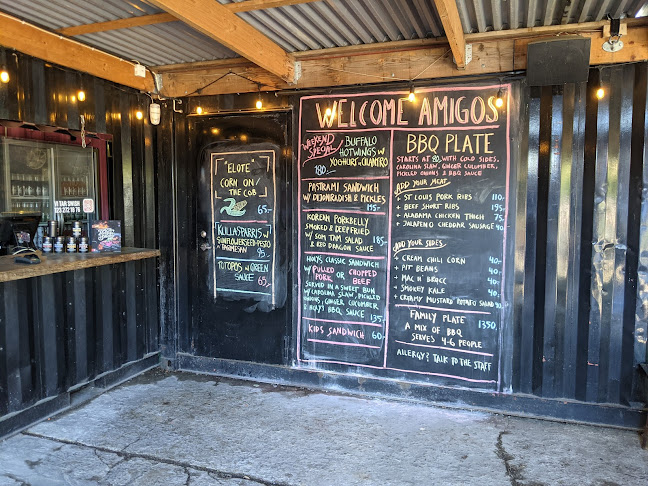 WELCOME AMIGOS
WEEKEND SPECIAL
BUFFALO
HOTWINGS W
YOGHURT N CILANTRO
180:-
PASTRAMI SANDWICH
W DIJONRADISH & PICKLES
145:-
KOREAN PORKBELLY
SMOKED & DEEPFRIED
W SOM TAM SALAD
& RED DRAGON SAUCE
185:-
HOLY'S CLASSIC SANDWICH
W PULLED OR CHOPPED
PORK BEEF
SERVED IN A SWEET BUN
W CAROLINA SLAW, PICKLED
ONIONS, GINGER CUCUMBER
& HOLY BBQ SAUCE 135:-
KIDS SANDWICH 60:-
BBQ PLATE
STARTS AT 80, WITH COLD SIDES,
CAROLINA SLAW, GINGER CUCUMBER,
PICKLED ONIONS & BBQ SAUCE
ADD YOUR MEAT
+ ST LOUIS PORK RIBS 110:-
+ BEEF SHORT RIBS 195:-
+ ALABAMA CHICKEN THIGH 75:-
+ JALAPENO CHEDDAR SAUSAGE 90:-
ADD YOUR SIDES
+ CREAM CHILI CORN 40:-
+ PIT BEANS 40:-
+ MAC N' CHEESE 40:-
+ SMOKEY KALE 40:-
+ CREAMY MUSTARD POTATO SALAD 40:-
FAMILY PLATE
A MIX OF BBQ
SERVES 4-6 PEOPLE
1350:-
ALLERGY? TALK TO THE STAFF
"ELOTE"
CORN ON
THE COB
65:-
KOLLASPARRIS W
SUNFLOWERSEED-PESTO
N PARMESAN
TOTOPOS W GREEN
SAUCE 65:-